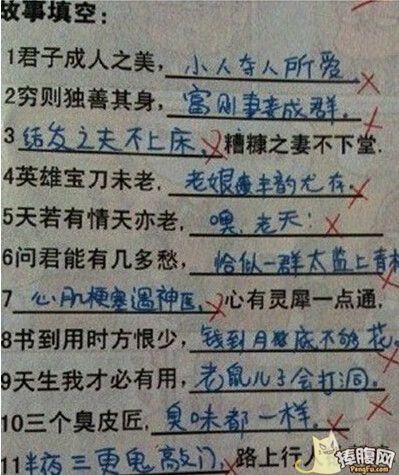 故事填空：
1君子成人之美，小人夺人所爱。
2穷则独善其身，富则妻妾成群。
3结发之夫不上床，糟糠之妻不下堂.
4英雄宝刀未老，老娘丰韵尤存。
5天若有情天亦老，噢，老天！
6问君能有几多愁，恰似一群太监上青
7心肌梗塞遇神医，心有灵犀一点通，
8书到用时方恨少，钱到月底不够花。
9天生我才必有用，老鼠儿子会打洞。
10三个臭皮匠，臭味都一样。
11半夜三更鬼敲门，路上行人
捧腹网
PengFu.com